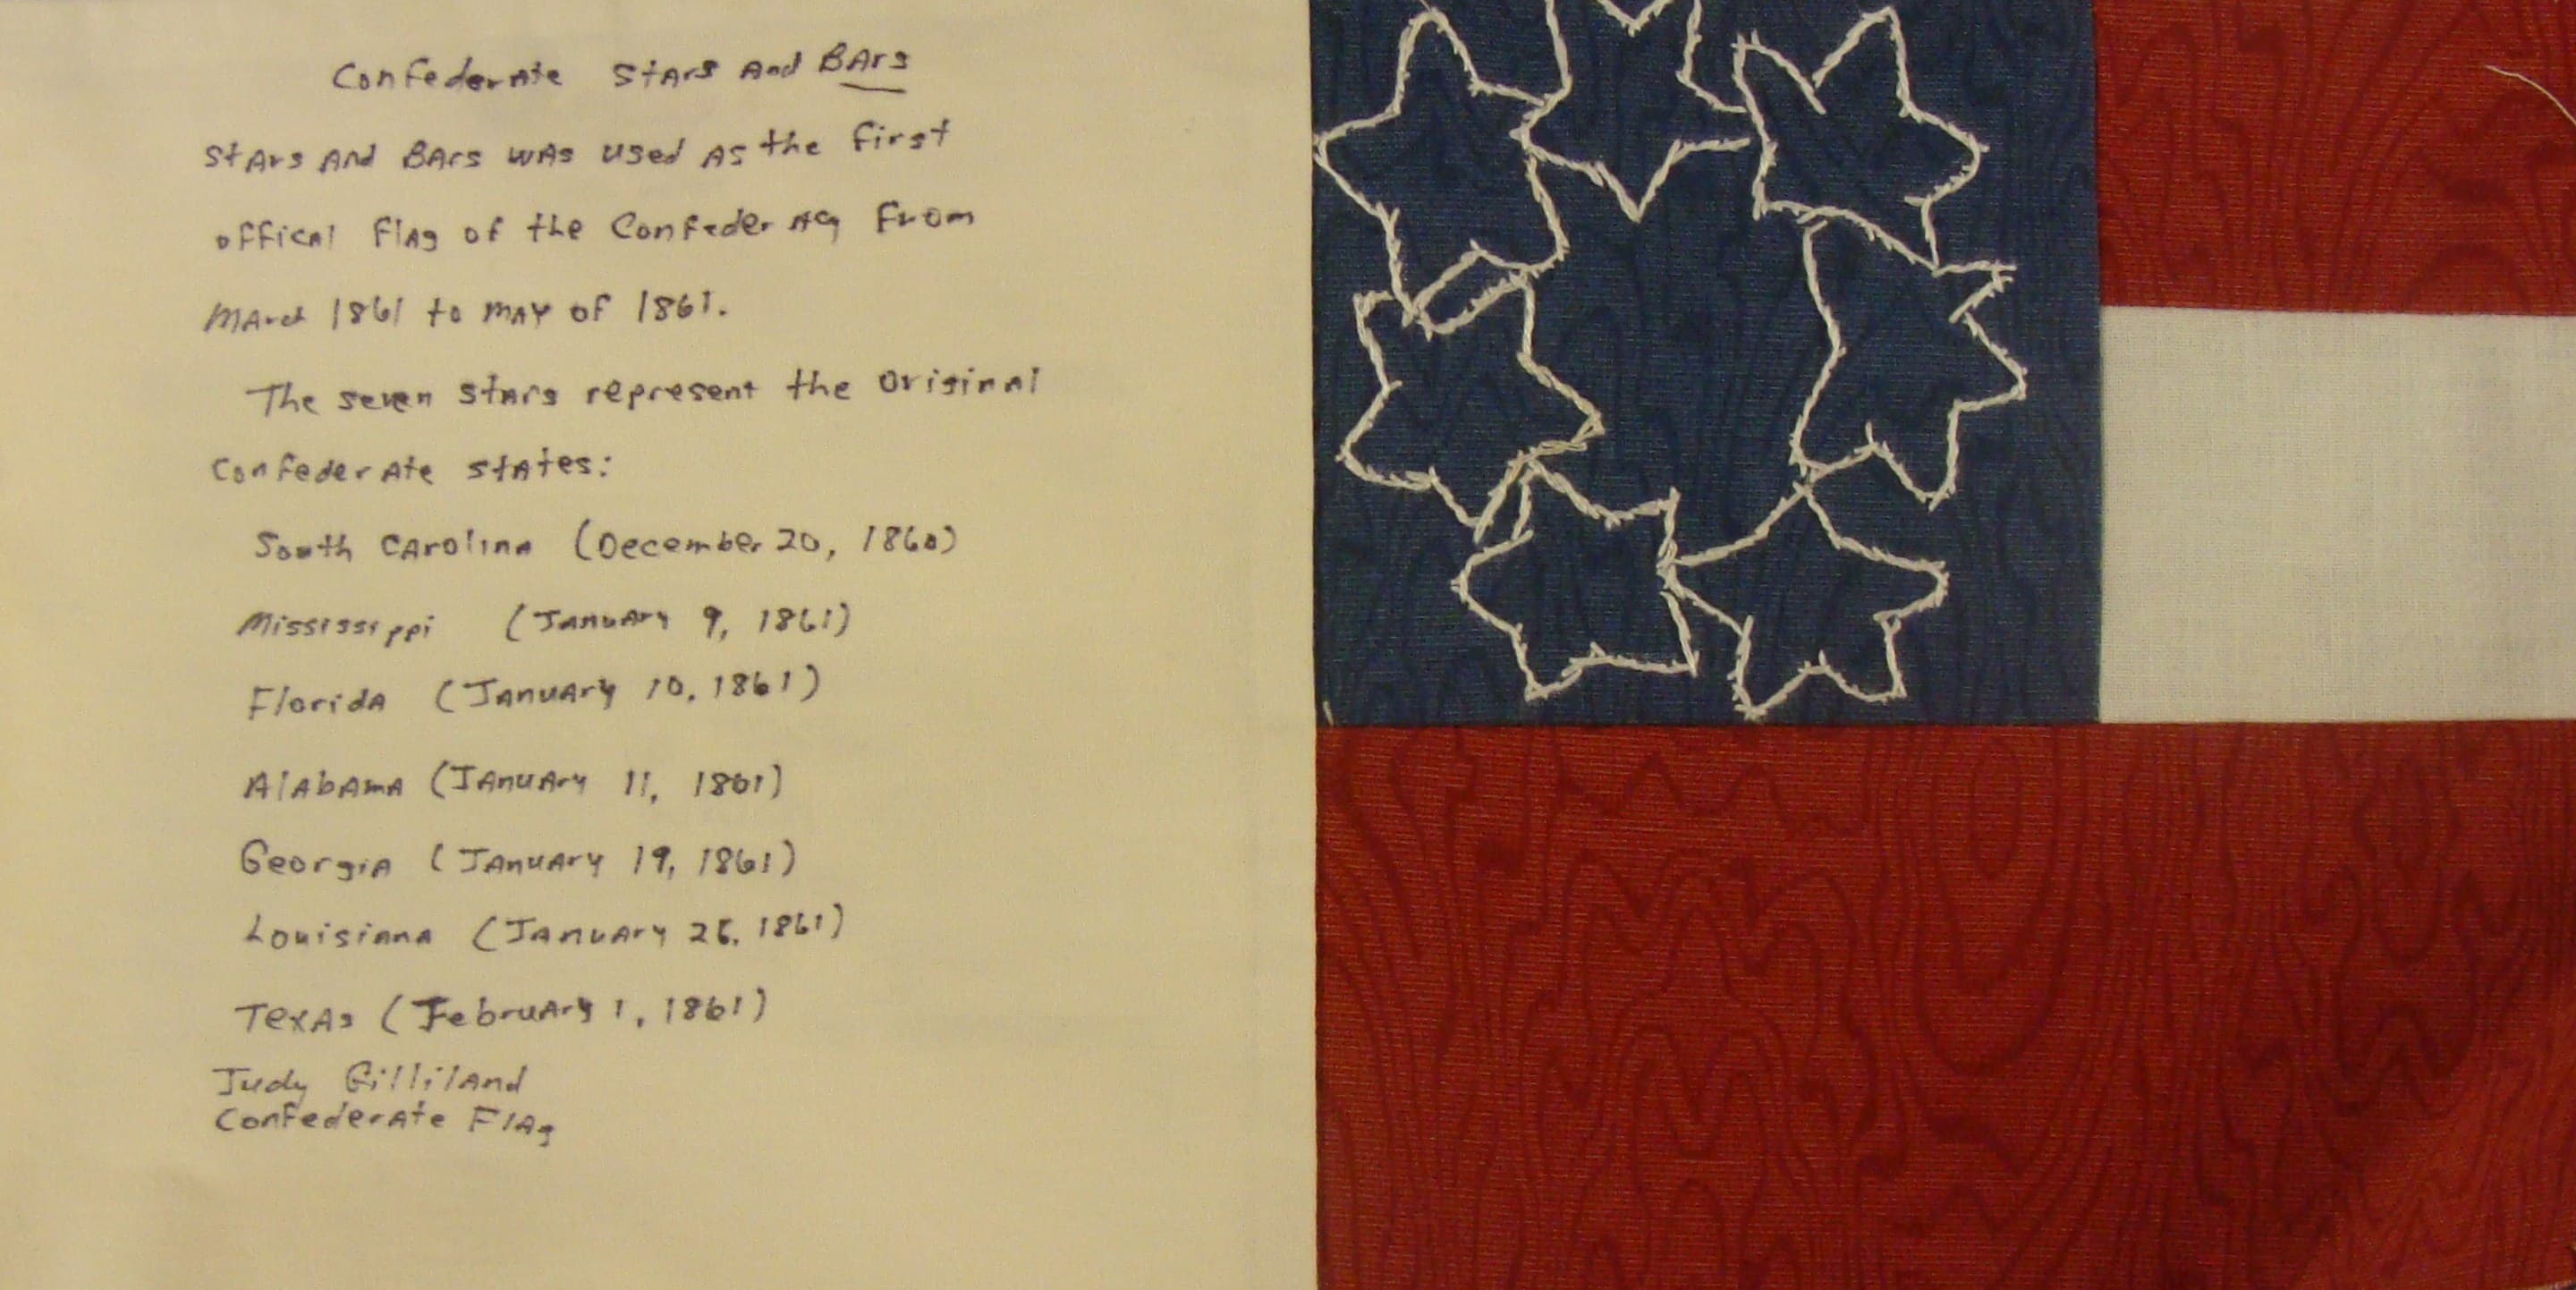 Confederate Stars and Bars
Stars and Bars was used as the first
offical flag of the Confederacy from
March 1861 to may of 1861.
The seven stars represent the original
Confederate states:
South Carolina (December 20, 1860)
Mississippi (January 9, 1861)
Florida (January 10, 1861)
Alabama (January 11, 1861)
Georgia (January 19, 1861)
Louisiana (January 26, 1861)
Texas (February 1, 1861)
Judy Gilliland
Confederate Flag